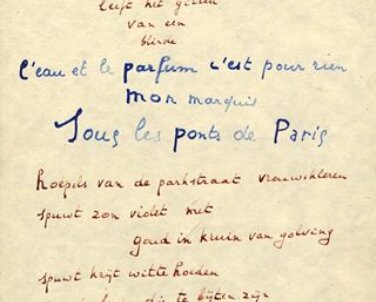 leeft het
van een
blinde
l'eau et le parfum c'est pour rien
mon marquis
Sous les ponts de Paris
hoepels van de parkstraat vrouwekleren
spuwt zon violet met
goud in kruin van golving
spuwt krijt witte hoeden
die te bijten zijn